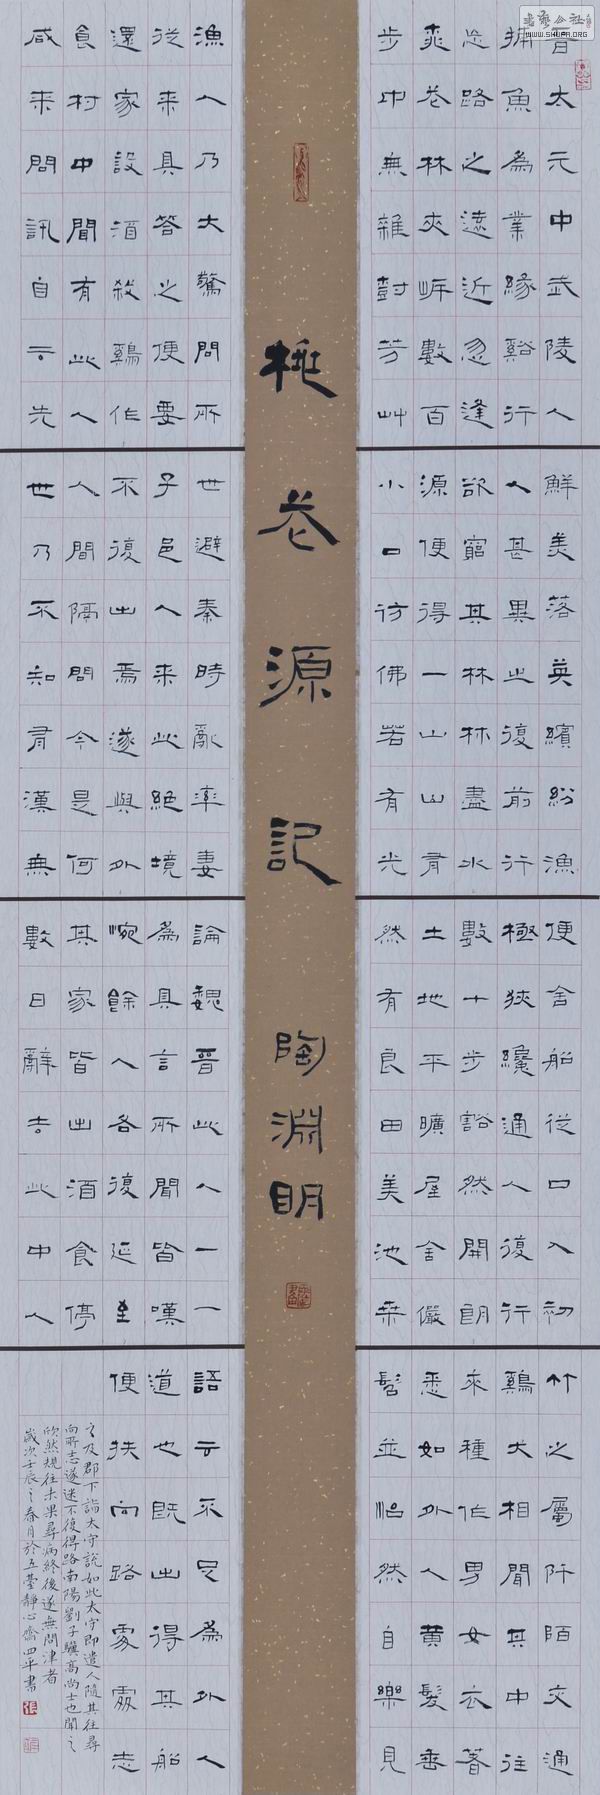 书艺公社
WWW.SHUFA.ORG
晉太元中武陵人
捕魚為業緣谿行
忘路之遠近忽逢
桃花林夾岸數百
步中無雜尌芳艸
鮮美落英繽紛漁
人甚異之復前行
欲窮其林林盡水
源便得一山山有
小口彷佛若有光
便舍船從口入初
極狹纔通人復行
數十步豁然開朗
土地平曠屋舍儼
然有良田美池桑
竹之屬阡陌交通
鷄犬相聞其中往
來種作男女衣著
悉如外人黃髮垂
髫並怡然自樂見
桃花源記
陶淵明
漁人乃大驚問所
從來具答之便要
還家設酒殺鷄作
食村中聞有此人
咸來問訊自云先
世避秦時亂率妻
子邑人來此絕境
不復出焉遂與外
人間隔問今是何
世乃不知有漢無
論魏晉此人一一
為具言所聞皆嘆
惋餘人各復延至
其家皆出酒食停
數日辭去此中人
語云不足為外人
道也既出得其船
便扶向路處處志
之及郡下詣太守說如此太守即遣人隨其往尋
向所志遂迷不復得路南陽劉子驥高尚士也聞之
欣然規往未果尋病終後遂無問津者
歲次壬辰之春月於五臺靜心齋四平書